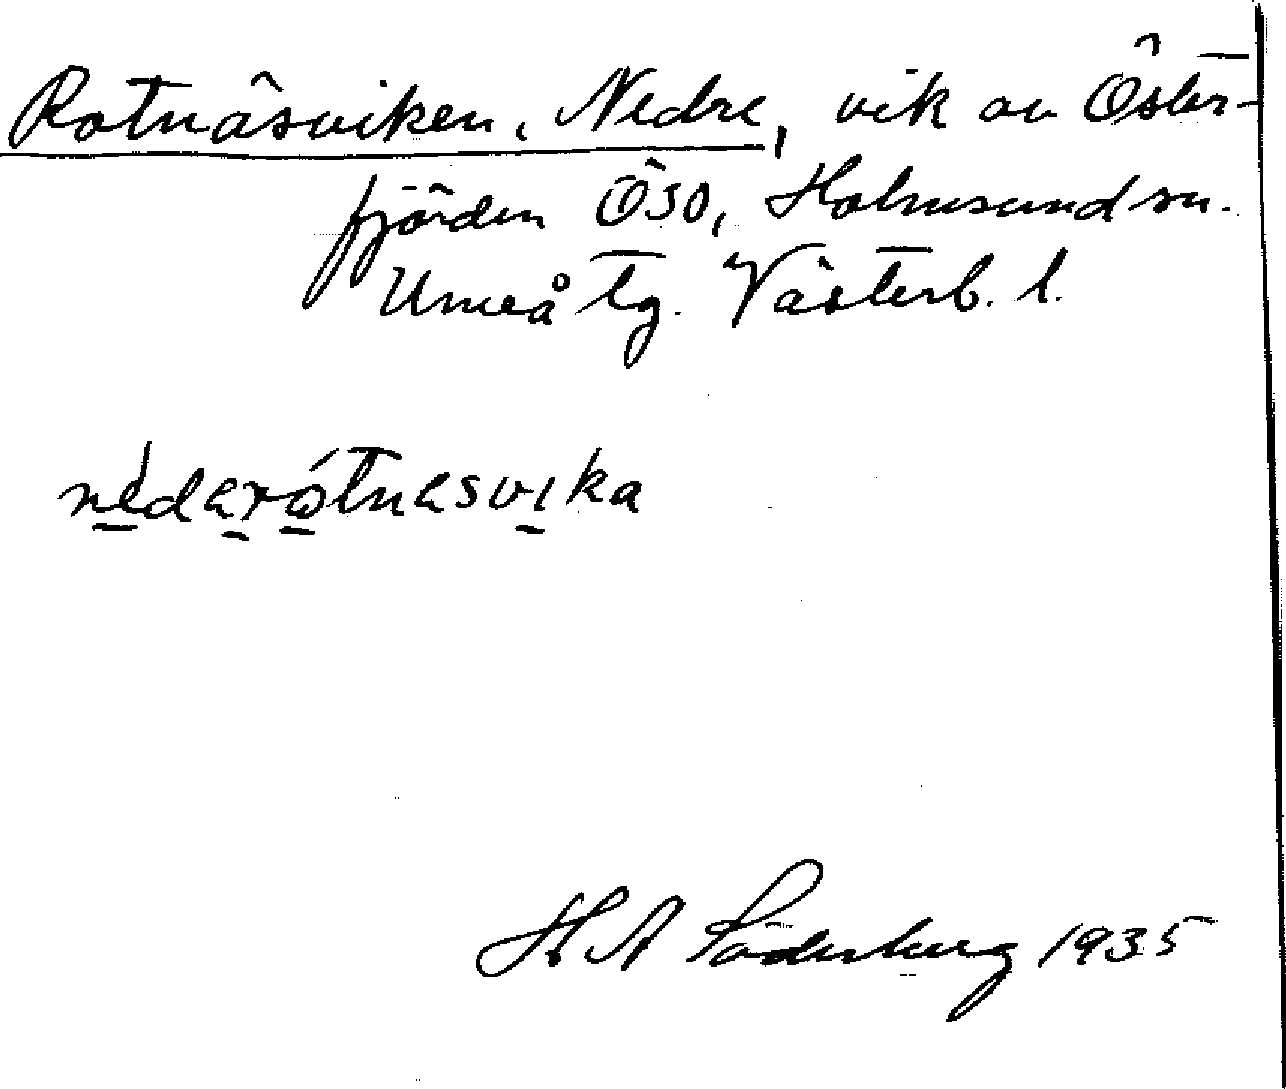 Rotnäsviken, Nedre, vik av Öster-
fjärden ÖSO, Holmsund sn.
Umeå tg. Västerb. l.
nedarotnasvika
H A Söderberg 1935